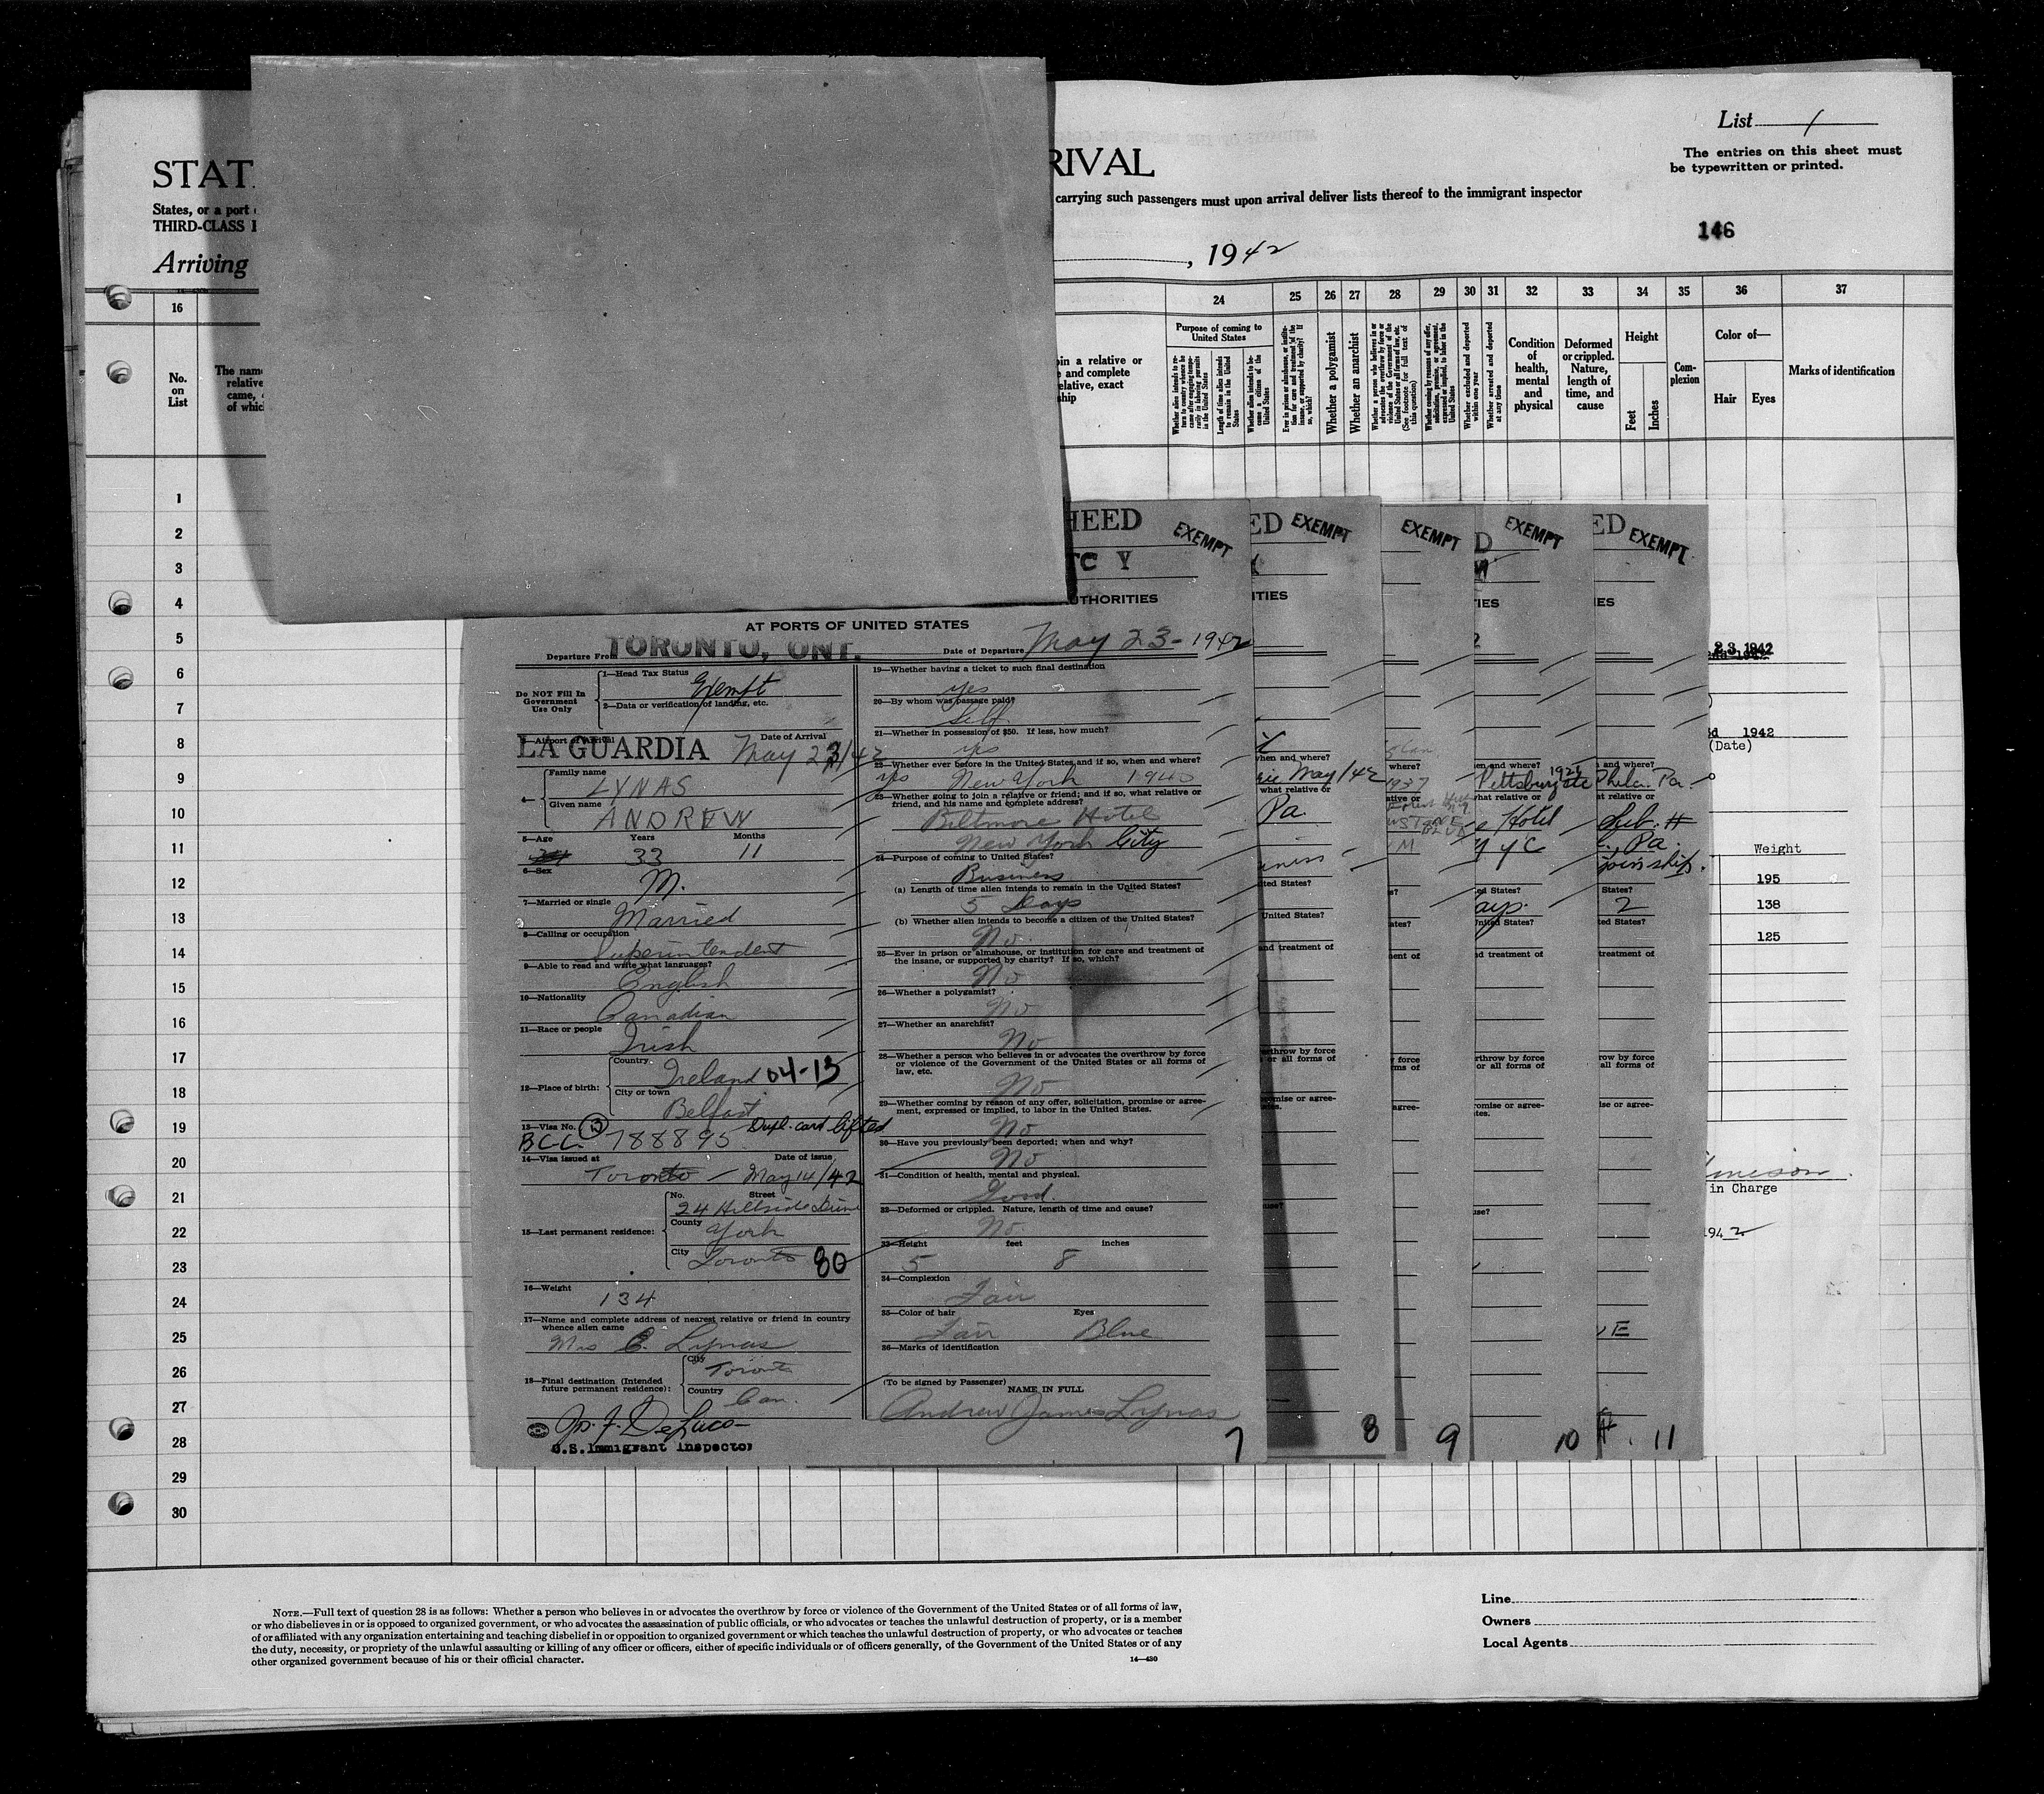 List 1
The entries on this sheet must
be typewritten or printed.
STAT
RIVAL
States, or a port
carrying such passengers must upon arrival deliver lists thereof to the immigrant inspector
THIRD-CLASS
146
Arriving
, 1942
16 24 25 26 27 28 29 30 31 32 33 34 35 36 37
No.
on
List
The name
relative
came,
of which
oin a relative or
e and complete
elative, exact
ship
Purpose of coming to
United States
Whether a polygamist
Whether an anarchist
Condition
of
health,
mental
and
physical
Deformed
or crippled.
Nature,
length of
time, and
cause
Height
Feet
Inches
Com-
plexion
Color of—
Hair
Eyes
Marks of identification
1
2
3
4
5
6
7
8
9
10
11
12
13
14
15
16
17
18
19
20
21
22
23
24
25
26
27
28
29
30
HEED
EXEMPT
TC Y
UTHORITIES
AT PORTS OF UNITED STATES
Departure From TORONTO, ONT.
Date of Departure May 23-1942
Do NOT Fill In
Government
Use Only
1—Head Tax Status
Exempt
2—Data or verification of landing, etc.
3—Airport of Arrival
Date of Arrival
LA GUARDIA May 23/42
4—
Family name
LYNAS
Given name
ANDREW
5—Age
Years
Months
33 11
6—Sex
M.
7—Married or single
Married
8—Calling or occupation
Superintendent
9—Able to read and write what languages?
English
10—Nationality
Canadian
11—Race or people
Irish
12—Place of birth:
Country
Ireland 04-13
City or town
Belfast
13—Visa No.
BCC 788895 Dupl. card lifted
14—Visa issued at
Date of issue
Toronto - May 14/42
15—Last permanent residence:
No.
Street
24 Hillside Drive
County
York
City
Toronto 80
16—Weight
134
17—Name and complete address of nearest relative or friend in country
whence alien came
Mrs E. Lynas
18—Final destination (Intended
future permanent residence):
City
Toronto
Country
Can.
U.S. Immigrant Inspector
19—Whether having a ticket to such final destination
yes
20—By whom was passage paid?
Self
21—Whether in possession of $50. If less, how much?
yes
22—Whether ever before in the United States and if so, when and where?
yes New York 1940
23—Whether going to join a relative or friend; and if so, what relative or
friend, and his name and complete address?
Biltmore Hotel
New York City
24—Purpose of coming to United States?
Business
(a) Length of time alien intends to remain in the United States?
5 Days
(b) Whether alien intends to become a citizen of the United States?
No
25—Ever in prison or almshouse, or institution for care and treatment of
the insane, or supported by charity? If so, which?
No
26—Whether a polygamist?
No
27—Whether an anarchist?
No
28—Whether a person who believes in or advocates the overthrow by force
or violence of the Government of the United States or all forms of
law, etc.
No
29—Whether coming by reason of any offer, solicitation, promise or agree-
ment, expressed or implied, to labor in the United States.
No
30—Have you previously been deported; when and why?
No
31—Condition of health, mental and physical.
Good
32—Deformed or crippled. Nature, length of time and cause?
No
33—Height
feet
inches
5 8
34—Complexion
Fair
35—Color of hair
Eyes
Fair Blue
36—Marks of identification
(To be signed by Passenger)
NAME IN FULL
Andrew James Lynas
7
ED EXEMPT
ITIES
when and where?
May/42
what relative or
Pa.
ited States?
United States?
and treatment of
erthrow by force
or all forms of
romise or agree-
8
EXEMPT
where?
1937
9
EXEMPT
IES
en and where?
Pittsburg
what relative or
Hotel
NYC
ed States?
ays.
nited States?
nd treatment of
rthrow by force
or all forms of
romise or agree-
10
ED EXEMPT
IES
and where?
Phila. Pa.
at relative or
Pa.
join ship.
States?
2
ted States?
treatment of
row by force
all forms of
ise or agree-
11
23 1942
1942
(Date)
Weight
195
138
125
in Charge
1942
NOTE.—Full text of question 28 is as follows: Whether a person who believes in or advocates the overthrow by force or violence of the Government of the United States or of all forms of law,
or who disbelieves in or is opposed to organized government, or who advocates the assassination of public officials, or who advocates or teaches the unlawful destruction of property, or is a member
of or affiliated with any organization entertaining and teaching disbelief in or opposition to organized government or which teaches the unlawful destruction of property, or who advocates or teaches
the duty, necessity, or propriety of the unlawful assaulting or killing of any officer or officers, either of specific individuals or of officers generally, of the Government of the United States or of any
other organized government because of his or their official character.
14—430
Line
Owners
Local Agents